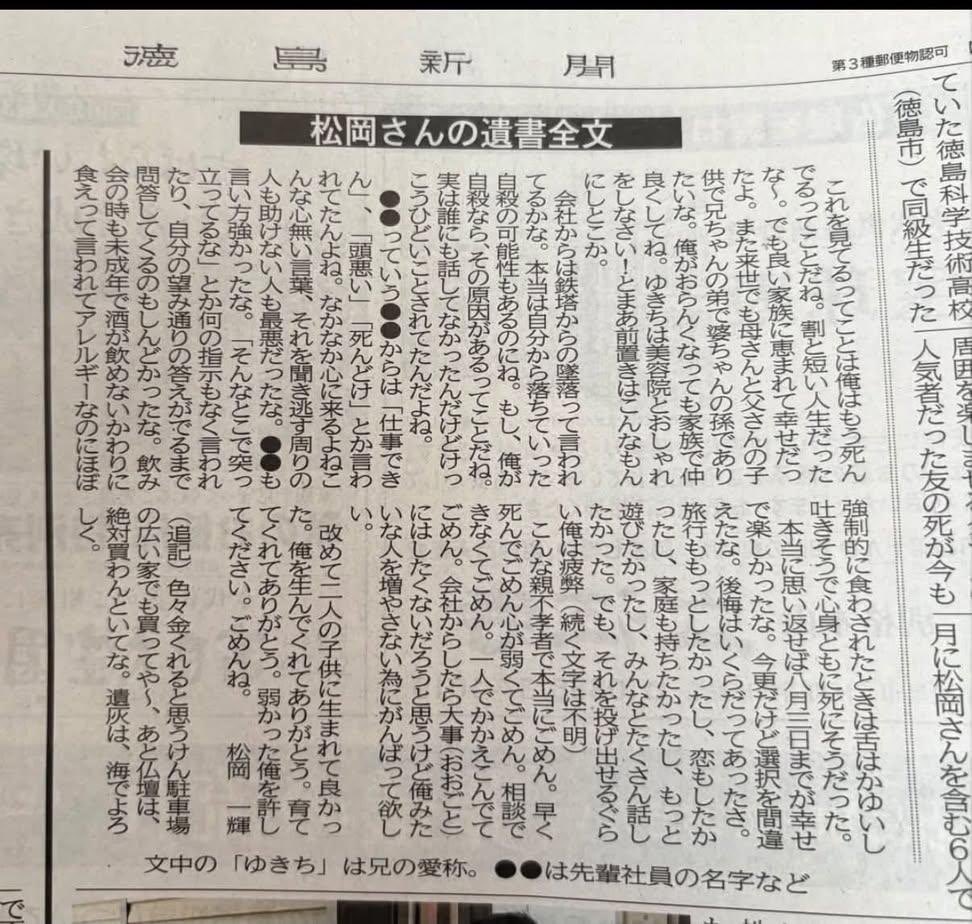 徳島新聞
第3種郵便物認可
ていた徳島科学技術高校
（徳島市）で同級生だった
人気者だった友の死が今も
月に松岡さんを含む6人で
松岡さんの遺書全文
これを見てるってことは俺はもう死ん
でるってことだね。割と短い人生だった
な〜。でも良い家族に恵まれて幸せだっ
たよ。また来世でも母さんと父さんの子
供で兄ちゃんの弟で婆ちゃんの孫であり
たいな。俺がおらんくなっても家族で仲
良くしてね。ゆきちは美容院とおしゃれ
をしなさい！とまあ前置きはこんなもん
にしとこか。
会社からは鉄塔からの墜落って言われ
てるかな。本当は自分から落ちていった
自殺の可能性もあるのにね。もし、俺が
自殺なら、その原因があるってことだね。
実は誰にも話してなかったんだけどけっ
こうひどいことされてたんだよね。
●●っていう●●からは「仕事でき
ん」、「頭悪い」「死んどけ」とか言わ
れてたんよね。なかなか心に来るよねこ
んな心無い言葉、それを聞き逃す周りの
人も助けない人も最悪だったな。●●も
言い方強かったな。「そんなとこで突っ
立ってるな」とか何の指示もなく言われ
たり、自分の望み通りの答えがでるまで
問答してくるのもしんどかったな。飲み
会の時も未成年で酒が飲めないかわりに
食えって言われてアレルギーなのにほぼ
強制的に食わされたときは舌はかゆいし
吐きそうで心身ともに死にそうだった。
本当に思い返せば八月三日までが幸せ
で楽しかったな。今更だけど選択を間違
えたな。後悔はいくらだってあったさ。
旅行ももっとしたかったし、恋もしたか
ったし、家庭も持ちたかったし、もっと
遊びたかったし、みんなとたくさん話し
たかった。でも、それを投げ出せるぐら
い俺は疲弊（続く文字は不明）
こんな親不孝者で本当にごめん。早く
死んでごめん心が弱くてごめん。相談で
きなくてごめん。一人でかかえこんでて
ごめん。会社からしたら大事（おおごと）
にはしたくないだろうと思うけど俺みた
いな人を増やさない為にがんばって欲し
い。
改めて二人の子供に生まれて良かっ
た。俺を生んでくれてありがとう。育て
てくれてありがとう。弱かった俺を許し
てください。ごめんね。　松岡　一輝
（追記）色々金くれると思うけん駐車場
の広い家でも買ってや〜、あと仏壇は、
絶対買わんといてな。遺灰は、海でよろ
しく。
文中の「ゆきち」は兄の愛称。●●は先輩社員の名字など